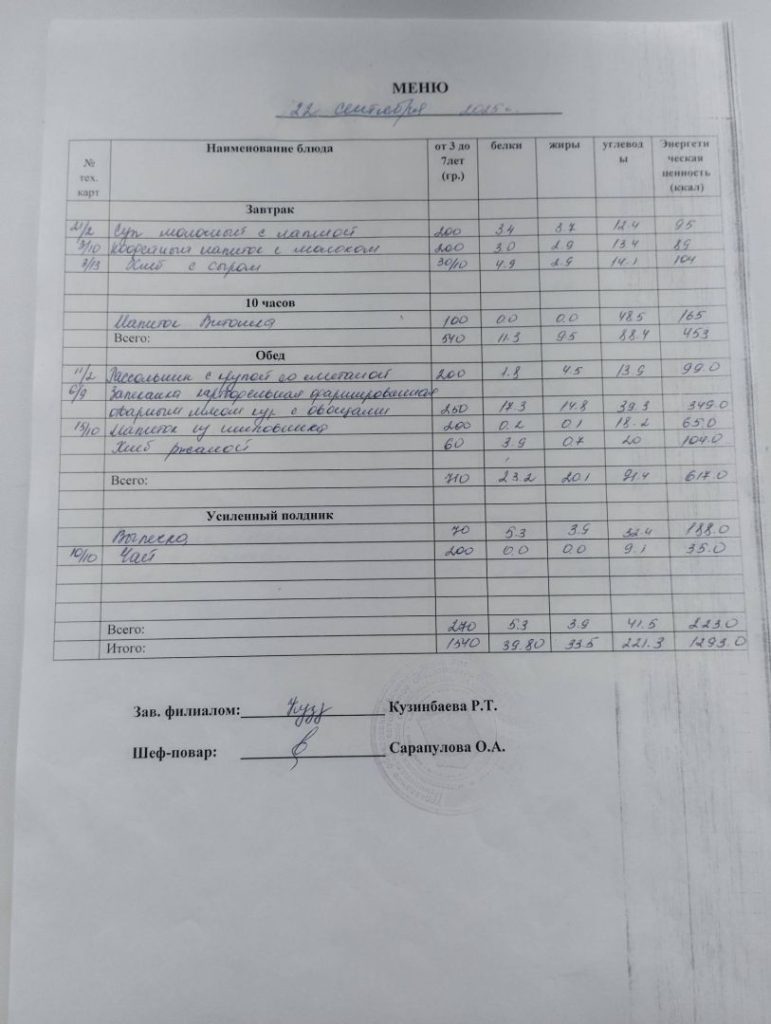 МЕНЮ
22 сентября 2025 г.
№ тех. карт | Наименование блюда | от 3 до 7лет (гр.) | белки | жиры | углеводы | Энергетическая ценность (ккал)
Завтрак
21/2 Суп молочный с лапшой 200 3.4 3.7 12.4 95
3/10 Кофейный напиток с молоком 200 3.0 2.9 13.4 89
3/13 Хлеб с сыром 30/10 4.9 2.9 14.1 104
10 часов
Напиток Витошка 100 0.0 0.0 48.5 165
Всего: 540 11.3 9.5 88.4 453
Обед
11/2 Рассольник с крупой со сметаной 200 1.8 4.5 13.9 99.0
6/9 Запеканка картофельная фаршированная
отварным мясом кур с овощами 250 17.3 14.8 39.3 349.0
15/10 Напиток из шиповника 200 0.2 0.1 18.2 65.0
Хлеб ржаной 60 3.9 0.7 20 104.0
Всего: 710 23.2 20.1 91.4 617.0
Усиленный полдник
Выпечка 70 5.3 3.9 32.4 188.0
10/10 Чай 200 0.0 0.0 9.1 35.0
Всего: 270 5.3 3.9 41.5 223.0
Итого: 1540 39.80 33.5 221.3 1293.0
Зав. филиалом: Кузинбаева Р.Т.
Шеф-повар: Сарапулова О.А.